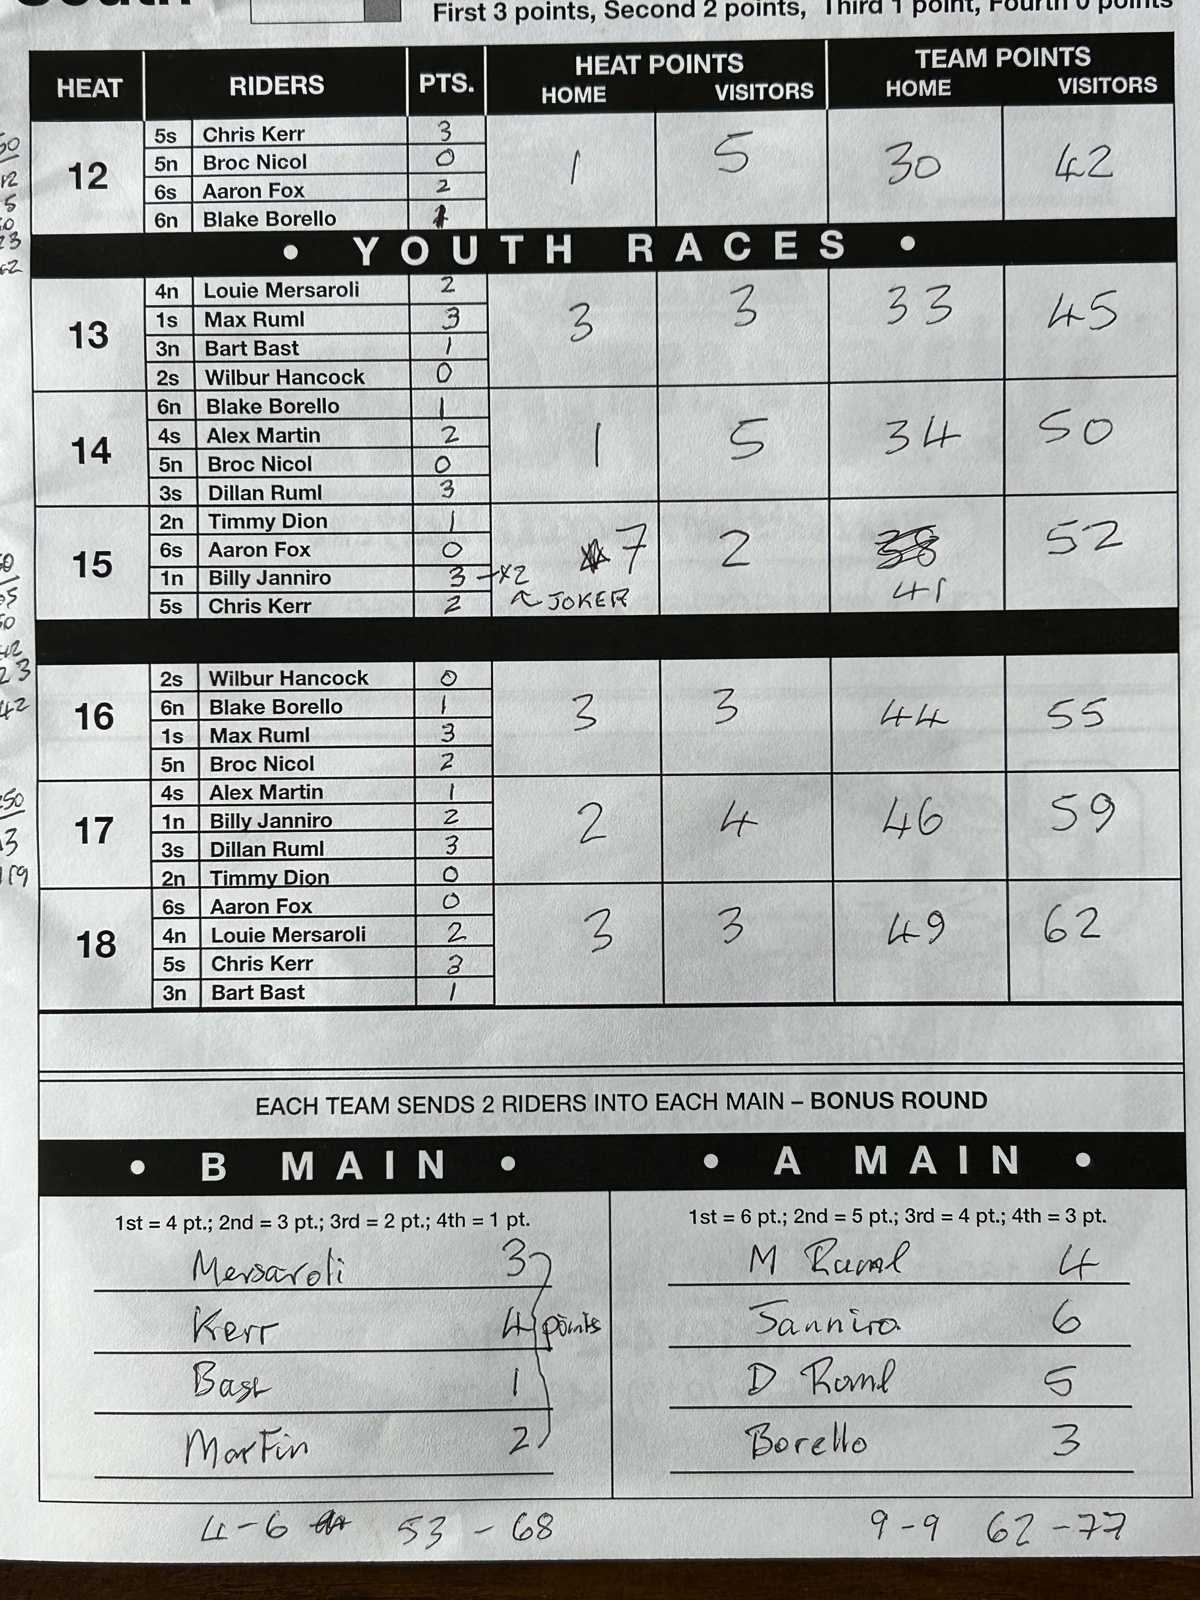 First 3 points, Second 2 points, Third 1 point, Fourth 0 points
HEAT RIDERS PTS. HEAT POINTS TEAM POINTS
HOME VISITORS HOME VISITORS
12 1 5 30 42
5s Chris Kerr 3
5n Broc Nicol 0
6s Aaron Fox 2
6n Blake Borello 1
• YOUTH RACES •
13 3 3 33 45
4n Louie Mersaroli 2
1s Max Ruml 3
3n Bart Bast 1
2s Wilbur Hancock 0
14 1 5 34 50
6n Blake Borello 1
4s Alex Martin 2
5n Broc Nicol 0
3s Dillan Ruml 3
15 7 2 38 52
2n Timmy Dion 1
6s Aaron Fox 0
1n Billy Janniro 3 → x2
5s Chris Kerr 2 JOKER 41
16 3 3 44 55
2s Wilbur Hancock 0
6n Blake Borello 1
1s Max Ruml 3
5n Broc Nicol 2
17 2 4 46 59
4s Alex Martin 1
1n Billy Janniro 2
3s Dillan Ruml 3
2n Timmy Dion 0
18 3 3 49 62
6s Aaron Fox 0
4n Louie Mersaroli 2
5s Chris Kerr 3
3n Bart Bast 1
EACH TEAM SENDS 2 RIDERS INTO EACH MAIN – BONUS ROUND
• B MAIN •
1st = 4 pt.; 2nd = 3 pt.; 3rd = 2 pt.; 4th = 1 pt.
Mersaroli 3
Kerr 4 points
Bast 1
Martin 2
4-6 53 - 68
• A MAIN •
1st = 6 pt.; 2nd = 5 pt.; 3rd = 4 pt.; 4th = 3 pt.
M Ruml 4
Janniro 6
D Ruml 5
Borello 3
9-9 62-77